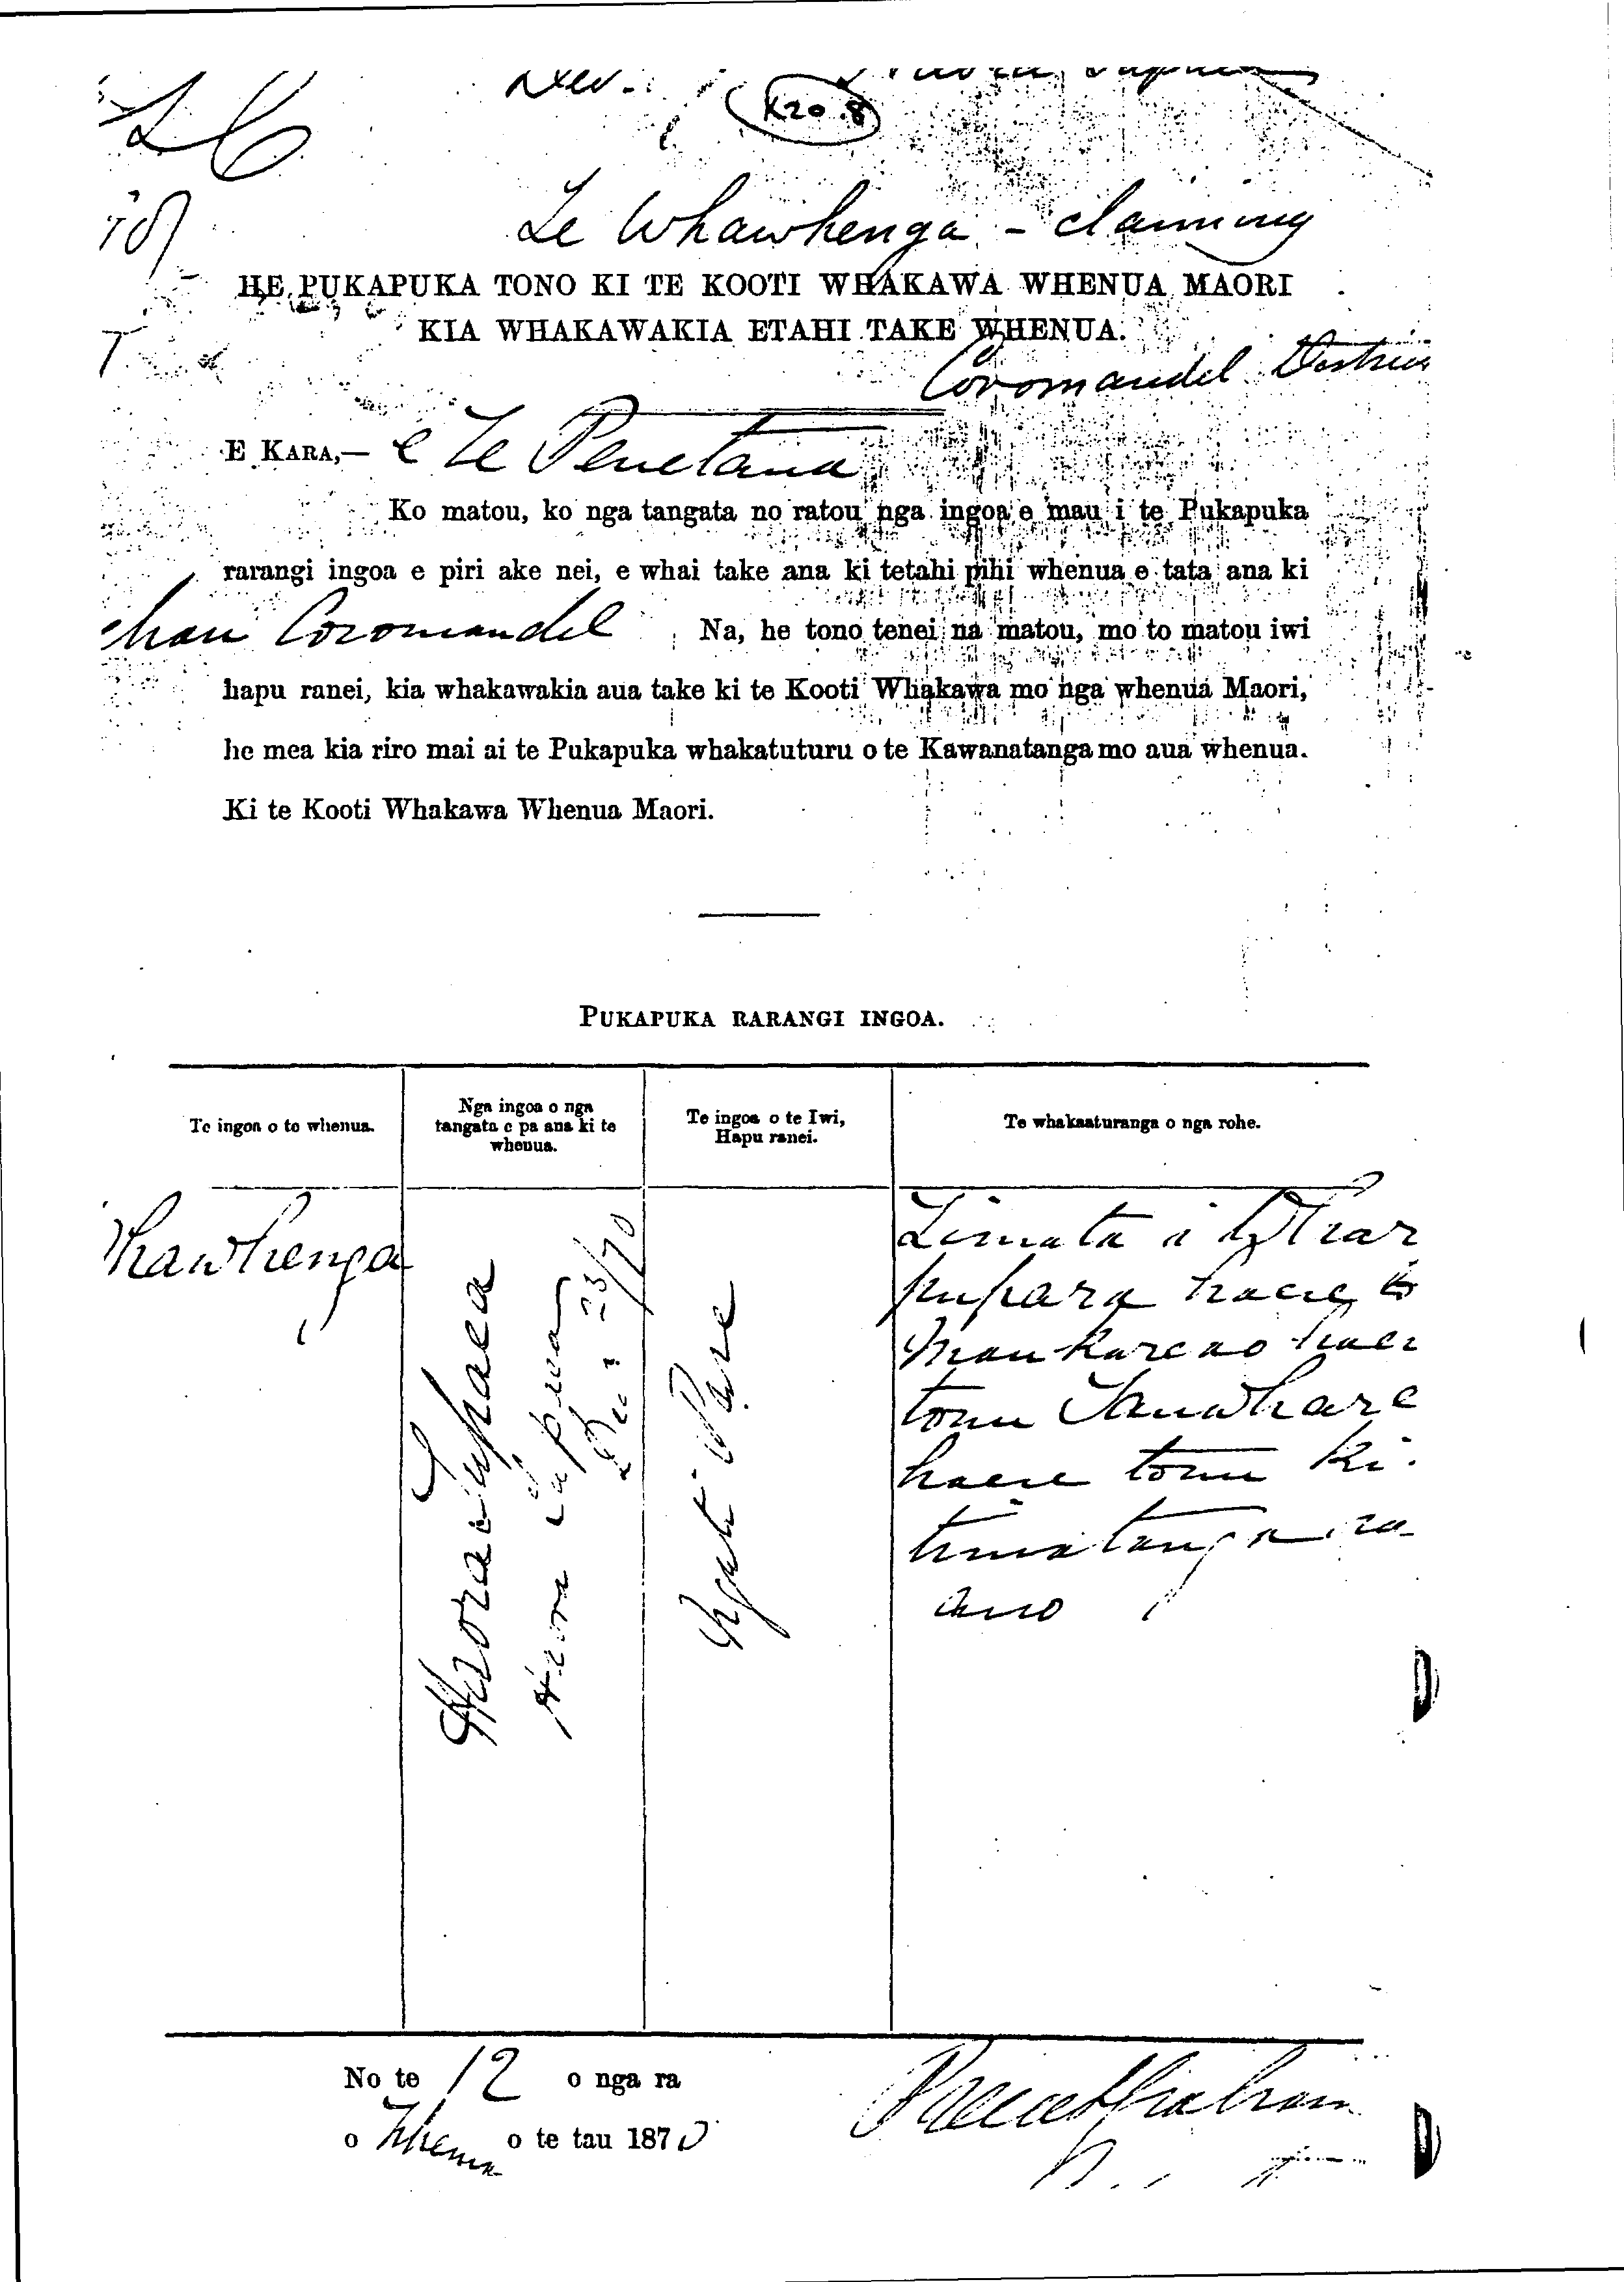 K20.8
Te Whawhenga - claiming
HE PUKAPUKA TONO KI TE KOOTI WHAKAWA WHENUA MAORI
KIA WHAKAWAKIA ETAHI TAKE WHENUA.
Coromandel District
E KARA,— e Te Penetana
Ko matou, ko nga tangata no ratou nga ingoa e mau i te Pukapuka
rarangi ingoa e piri ake nei, e whai take ana ki tetahi pihi whenua e tata ana ki
Coromandel Na, he tono tenei na matou, mo to matou iwi
hapu ranei, kia whakawakia aua take ki te Kooti Whakawa mo nga whenua Maori,
he mea kia riro mai ai te Pukapuka whakatuturu o te Kawanatanga mo aua whenua.
Ki te Kooti Whakawa Whenua Maori.
PUKAPUKA RARANGI INGOA.
Te ingoa o te whenua.
Nga ingoa o nga
tangata e pa ana ki te
whenua.
Te ingoa o te Iwi,
Hapu ranei.
Te whakaaturanga o nga rohe.
Whawhenga
Haora Tupaea
Haora Tupaea
23/70
Ngati Pare
Timata i
haere
haere
tonu Tauwhare
haere tonu ki
timatanga
ano
No te 12 o nga ra
o o te tau 1870